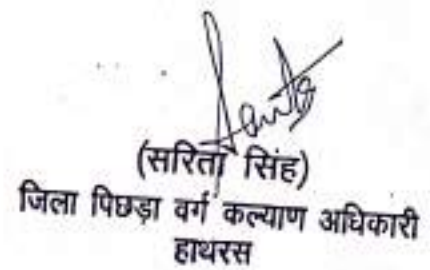 (सरिता सिंह)
जिला पिछड़ा वर्ग कल्याण अधिकारी
हाथरस